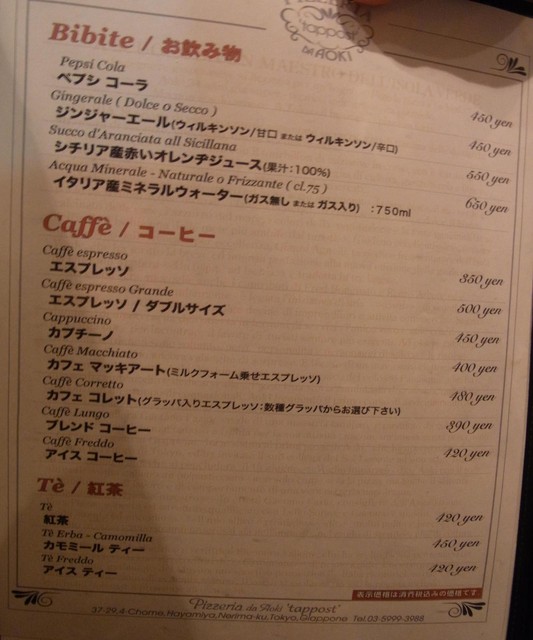 PIZZERIA
"tappost"
DA AOKI
Bibite / お飲み物
Pepsi Cola
ペプシ コーラ 450 yen
Gingerale ( Dolce o Secco )
ジンジャーエール(ウィルキンソン/甘口 または ウィルキンソン/辛口) 450 yen
Succo d'Aranciata all Sicillana
シチリア産赤いオレンヂジュース(果汁:100%) 550 yen
Acqua Minerale - Naturale o Frizzante ( cl.75 )
イタリア産ミネラルウォーター(ガス無し または ガス入り) :750ml 650 yen
Caffè / コーヒー
Caffè espresso
エスプレッソ 350 yen
Caffè espresso Grande
エスプレッソ / ダブルサイズ 500 yen
Cappuccino
カプチーノ 450 yen
Caffè Macchiato
カフェ マッキアート(ミルクフォーム乗せエスプレッソ) 400 yen
Caffè Corretto
カフェ コレット(グラッパ入りエスプレッソ:数種グラッパからお選び下さい) 480 yen
Caffè Lungo
ブレンド コーヒー 390 yen
Caffè Freddo
アイス コーヒー 420 yen
Tè / 紅茶
Tè
紅茶 420 yen
Tè Erba - Camomilla
カモミール ティー 450 yen
Tè Freddo
アイス ティー 420 yen
表示価格は消費税込みの価格です
Pizzeria da Aoki 'tappost'
37-29,4-Chome,Nayamiya,Nerima-ku,Tokyo,Giappone Tel.03-5999-3988